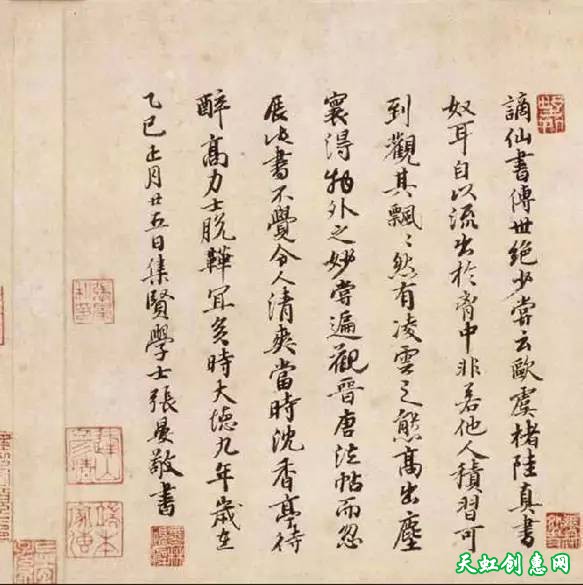 謫仙書傳世絕少嘗云歐虞褚陸真書
奴耳自以流出於胷中非若他人積習可
到觀其飄〻然有凌雲之態高出塵
寰得物外之妙嘗遍觀晉唐法帖而忽
展此書不覺令人清爽當時沈香亭待
醉高力士脫鞾冝矣時大德九年歲在
乙巳正月廿五日集賢學士張晏敬書
天虹创惠网